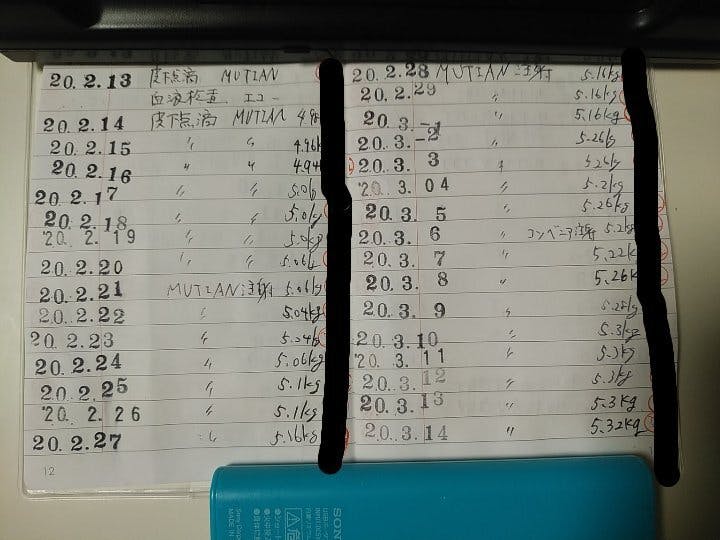 20.2.13 皮下点滴 MUTIAN
血液検査、エコー
20.2.14 皮下点滴 MUTIAN 4.9
20.2.15 〃 〃 4.96k
20.2.16 〃 〃 4.94
20.2.17 〃 〃 5.0
20.2.18 〃 〃 5.0kg
'20. 2.19 〃 〃 5.0kg
20.2.20 〃 〃 5.06
20.2.21 MUTIAN注射 5.06
20.2.22 〃 5.04kg
20.2.23 〃 5.04k
20.2.24 〃 5.06kg
20.2.25 〃 5.1kg
'20. 2.26 〃 5.1kg
20.2.27 〃 5.16kg
12
20.2.28 MUTIAN注射 5.16kg
20.2.29 〃 5.16kg
20.3.-1 〃 5.16kg
20.3.-2 〃 5.26kg
20.3. 3 〃 5.26kg
'20. 3.04 〃 5.2kg
20.3. 5 〃 5.26kg
20.3. 6 〃 コンベニア注射 5.2
20.3. 7 〃 5.22k
20.3. 8 〃 5.26k
20.3. 9 〃 5.25kg
20.3.10 〃 5.3kg
'20. 3.11 〃 5.3kg
20.3.12 〃 5.3kg
20.3.13 〃 5.3kg
20.3.14 〃 5.32kg
SON
危
MADE IN